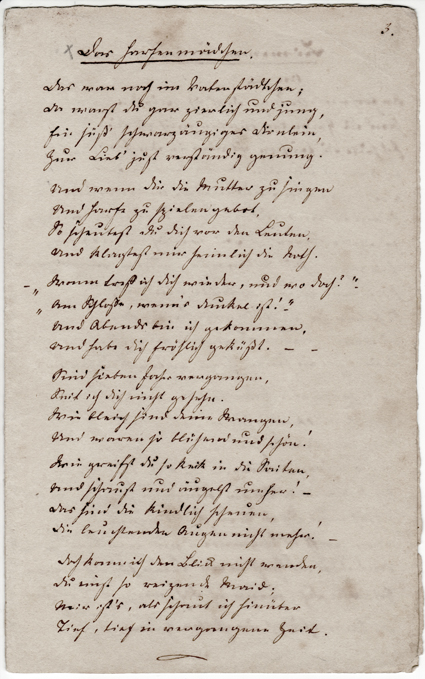 3.
Das Harfenmädchen.
Das war noch im Vaterstädtchen;
Da warst du gar zierlich und jung,
Ein süß' schwarzäugiges Dirnlein,
Zur Lieb' just verständig genung.
Und wenn dir die Mutter zu singen
Und Harfe zu spielen gebot,
So scheutest du dich vor den Leuten,
Und klagtest mir heimlich die Noth.
– „Wann treff' ich dich wieder, und wo doch?" –
„Am Schlosse, wenn's dunkel ist!"
Und Abends bin ich gekommen,
Und habe dich fröhlich geküßt. – –
Sind sieben Jahr vergangen,
Seit ich dich nicht gesehn.
Wie bleich sind deine Wangen,
Und waren so blühend und schön!
Wie greifst du so keck in die Saiten,
Und schaust und äugelst umher! –
Das sind die kindlich scheuen,
Die leuchtenden Augen nicht mehr! –
Doch kann ich den Blick nicht wenden,
Du einst so reizende Maid;
Mir ist's, als schaut' ich hinüber
Tief, tief in vergangene Zeit.